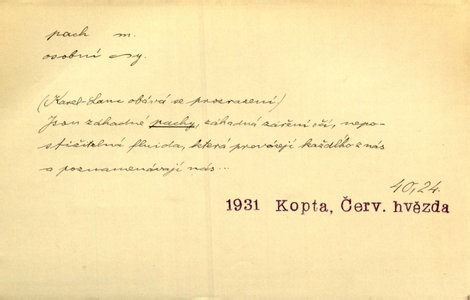 pach m.
osobní
(Karel-Lanc obává se prozrazení)
Jsou záhadné pachy, záhadná záření očí, nepo-
stižitelná fluida, která provázejí každého z nás
a poznamenávají nás...
40,24
1931 Kopta, Červ. hvězda